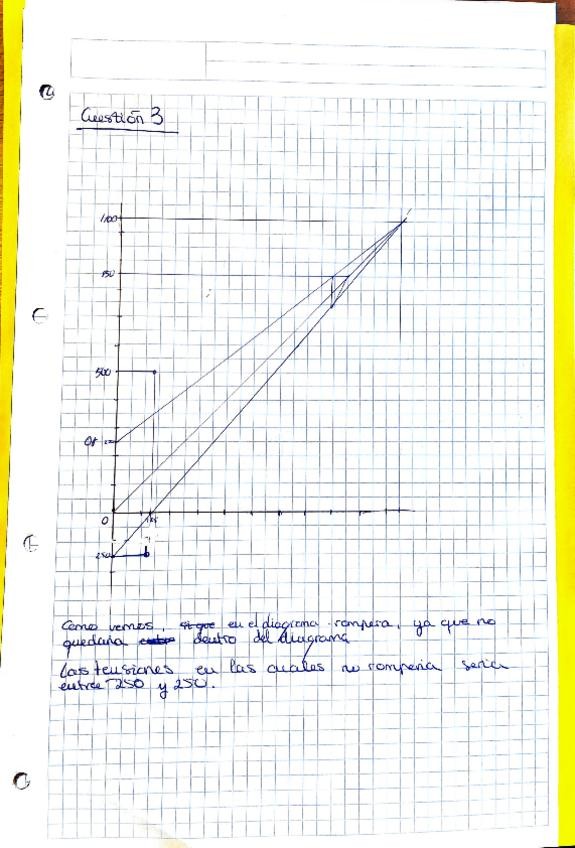 Cuestión 3
1100
950
500
0
125
250
Como vemos, en el diagrama rompera, ya que no
quedaria dentro del diagrama
Las tensiones en las cuales no romperia seria
entre 250 y 250.